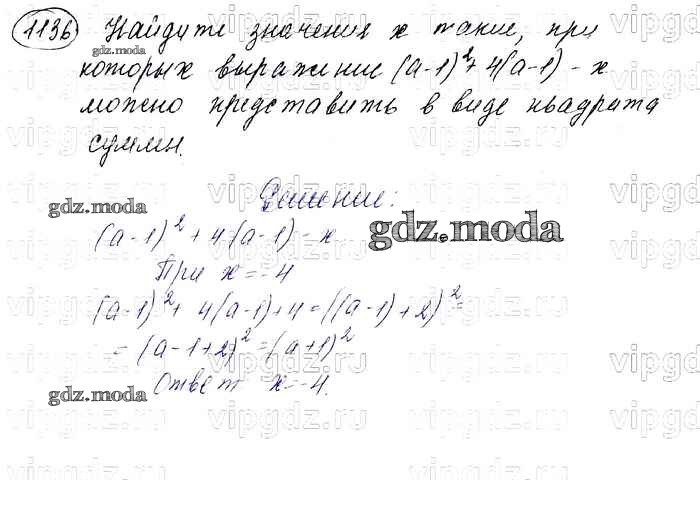 1136 Найдите значения x такие, при
которых выражение (a-1)² + 4(a-1) - x
можно представить в виде квадрата
суммы.
Решение:
gdz.moda
(a-1)² + 4(a-1) - x
gdz.moda
При x = -4
(a-1)² + 4(a-1) + 4 = ((a-1) + 2)² =
= (a-1+2)² = (a+1)²
Ответ x = -4.
gdz.moda